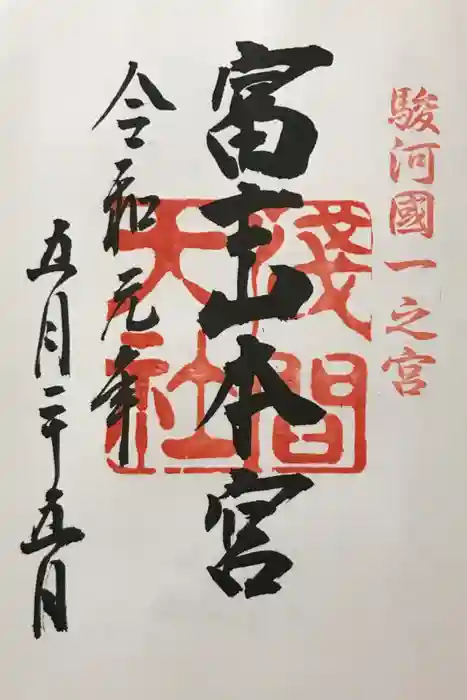 駿河國一之宮
富士山本宮
淺間
大社
令和元年
五月二十五日